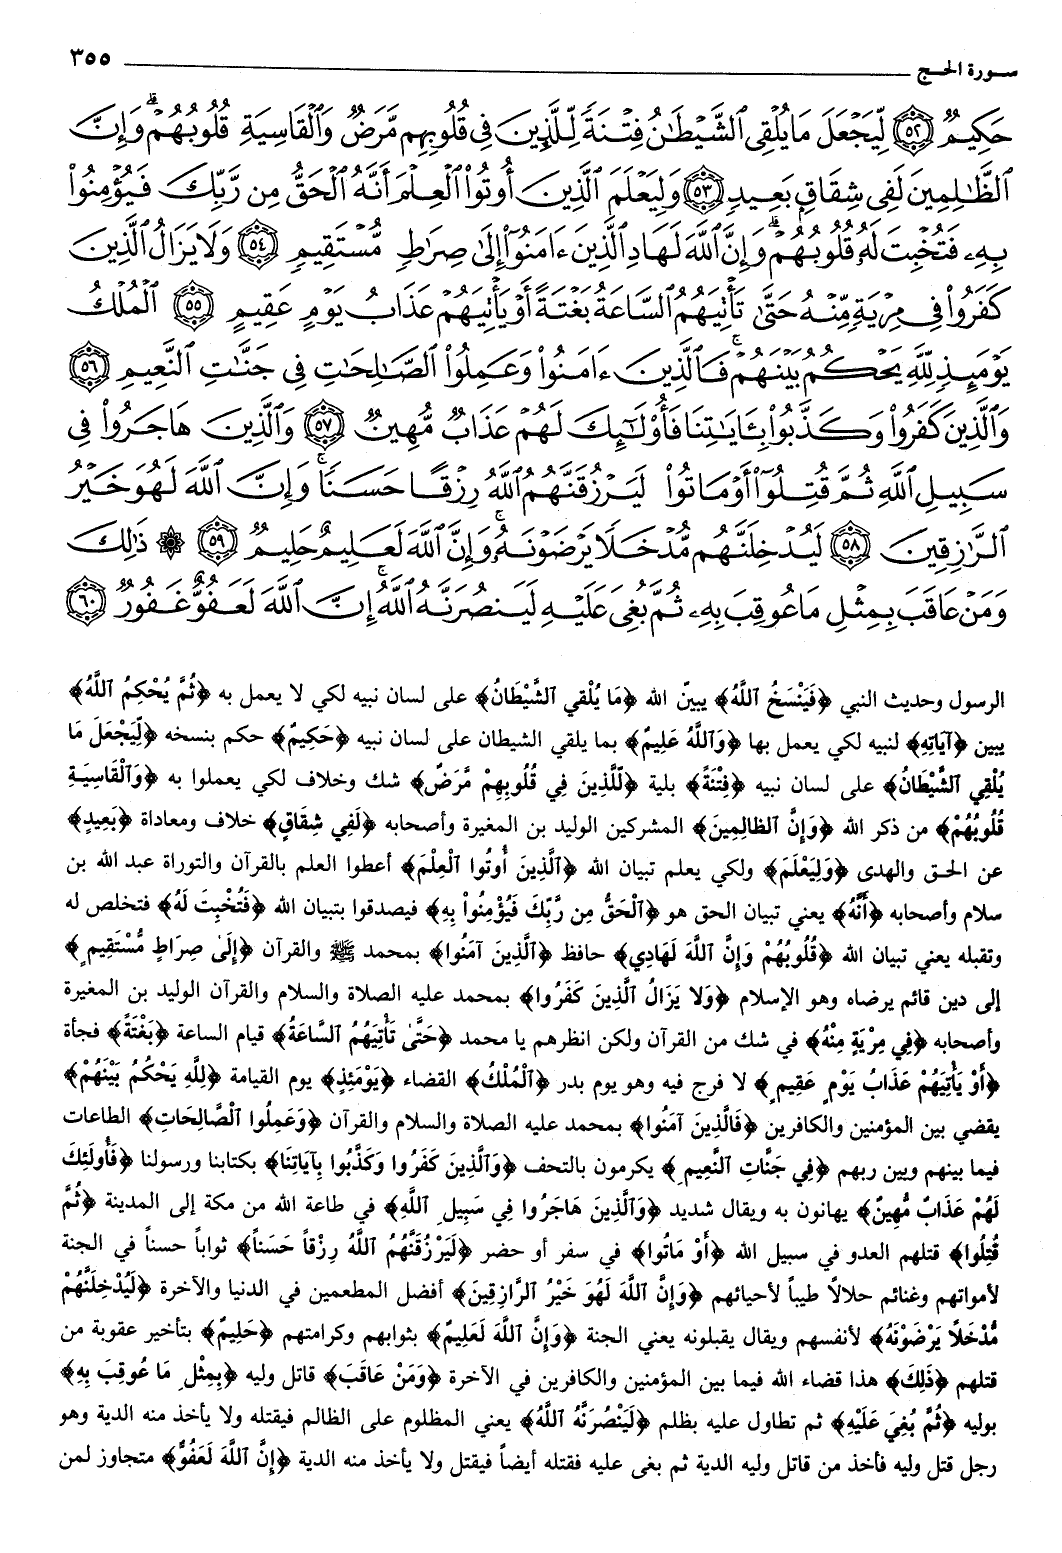 سورة الحج ٣٥٥
حَكِيمٌ ﴿٥٢﴾ لِّيَجْعَلَ مَا يُلْقِى ٱلشَّيْطَٰنُ فِتْنَةً لِّلَّذِينَ فِى قُلُوبِهِم مَّرَضٌ وَٱلْقَاسِيَةِ قُلُوبُهُمْ ۗ وَإِنَّ
ٱلظَّٰلِمِينَ لَفِى شِقَاقٍۭ بَعِيدٍ ﴿٥٣﴾ وَلِيَعْلَمَ ٱلَّذِينَ أُوتُوا۟ ٱلْعِلْمَ أَنَّهُ ٱلْحَقُّ مِن رَّبِّكَ فَيُؤْمِنُوا۟
بِهِۦ فَتُخْبِتَ لَهُۥ قُلُوبُهُمْ ۗ وَإِنَّ ٱللَّهَ لَهَادِ ٱلَّذِينَ ءَامَنُوٓا۟ إِلَىٰ صِرَٰطٍ مُّسْتَقِيمٍ ﴿٥٤﴾ وَلَا يَزَالُ ٱلَّذِينَ
كَفَرُوا۟ فِى مِرْيَةٍ مِّنْهُ حَتَّىٰ تَأْتِيَهُمُ ٱلسَّاعَةُ بَغْتَةً أَوْ يَأْتِيَهُمْ عَذَابُ يَوْمٍ عَقِيمٍ ﴿٥٥﴾ ٱلْمُلْكُ
يَوْمَئِذٍ لِّلَّهِ يَحْكُمُ بَيْنَهُمْ ۚ فَٱلَّذِينَ ءَامَنُوا۟ وَعَمِلُوا۟ ٱلصَّٰلِحَٰتِ فِى جَنَّٰتِ ٱلنَّعِيمِ ﴿٥٦﴾
وَٱلَّذِينَ كَفَرُوا۟ وَكَذَّبُوا۟ بِـَٔايَٰتِنَا فَأُو۟لَٰٓئِكَ لَهُمْ عَذَابٌ مُّهِينٌ ﴿٥٧﴾ وَٱلَّذِينَ هَاجَرُوا۟ فِى
سَبِيلِ ٱللَّهِ ثُمَّ قُتِلُوٓا۟ أَوْ مَاتُوا۟ لَيَرْزُقَنَّهُمُ ٱللَّهُ رِزْقًا حَسَنًا ۚ وَإِنَّ ٱللَّهَ لَهُوَ خَيْرُ
ٱلرَّٰزِقِينَ ﴿٥٨﴾ لَيُدْخِلَنَّهُم مُّدْخَلًا يَرْضَوْنَهُۥ ۗ وَإِنَّ ٱللَّهَ لَعَلِيمٌ حَلِيمٌ ﴿٥٩﴾ ۞ ذَٰلِكَ
وَمَنْ عَاقَبَ بِمِثْلِ مَا عُوقِبَ بِهِۦ ثُمَّ بُغِىَ عَلَيْهِ لَيَنصُرَنَّهُ ٱللَّهُ ۗ إِنَّ ٱللَّهَ لَعَفُوٌّ غَفُورٌ ﴿٦٠﴾
الرسول وحديث النبي ﴿فَيَنْسَخُ ٱللَّهُ﴾ يبينّ الله ﴿مَا يُلْقِي ٱلشَّيْطَانُ﴾ على لسان نبيه لكي لا يعمل به ﴿ثُمَّ يُحْكِمُ ٱللَّهُ﴾
يبين ﴿آيَاتِهِ﴾ لنبيه لكي يعمل بها ﴿وَٱللَّهُ عَلِيمٌ﴾ بما يلقي الشيطان على لسان نبيه ﴿حَكِيمٌ﴾ حكم بنسخه ﴿لِّيَجْعَلَ مَا
يُلْقِي ٱلشَّيْطَانُ﴾ على لسان نبيه ﴿فِتْنَةً﴾ بلية ﴿لِّلَّذِينَ فِي قُلُوبِهِمْ مَّرَضٌ﴾ شك وخلاف لكي يعملوا به ﴿وَٱلْقَاسِيَةِ
قُلُوبُهُمْ﴾ من ذكر الله ﴿وَإِنَّ ٱلظَالِمِينَ﴾ المشركين الوليد بن المغيرة وأصحابه ﴿لَفِي شِقَاقٍ﴾ خلاف ومعاداة ﴿بَعِيدٍ﴾
عن الحق والهدى ﴿وَلِيَعْلَمَ﴾ ولكي يعلم تبيان الله ﴿ٱلَّذِينَ أُوتُوا ٱلْعِلْمَ﴾ أعطوا العلم بالقرآن والتوراة عبد الله بن
سلام وأصحابه ﴿أَنَّهُ﴾ يعني تبيان الحق هو ﴿ٱلْحَقُّ مِن رَّبِّكَ فَيُؤْمِنُواْ بِهِ﴾ فيصدقوا بتبيان الله ﴿فَتُخْبِتَ لَهُ﴾ فتخلص له
وتقبله يعني تبيان الله ﴿قُلُوبُهُمْ وَإِنَّ ٱللَّهَ لَهَادِي﴾ حافظ ﴿ٱلَّذِينَ آمَنُوا﴾ بمحمد ﷺ والقرآن ﴿إِلَىٰ صِرَاطٍ مُّسْتَقِيمٍ﴾
إلى دين قائم يرضاه وهو الإسلام ﴿وَلَا يَزَالُ ٱلَّذِينَ كَفَرُوا﴾ بمحمد عليه الصلاة والسلام والقرآن الوليد بن المغيرة
وأصحابه ﴿فِي مِرْيَةٍ مِنْهُ﴾ في شك من القرآن ولكن انظرهم يا محمد ﴿حَتَّىٰ تَأْتِيَهُمُ ٱلسَّاعَةُ﴾ قيام الساعة ﴿بَغْتَةً﴾ فجأة
﴿أَوْ يَأْتِيَهُمْ عَذَابُ يَوْمٍ عَقِيمٍ﴾ لا فرج فيه وهو يوم بدر ﴿ٱلْمُلْكُ﴾ القضاء ﴿يَوْمَئِذٍ﴾ يوم القيامة ﴿لِلَّهِ يَحْكُمُ بَيْنَهُمْ﴾
يقضي بين المؤمنين والكافرين ﴿فَالَّذِينَ آمَنُوا﴾ بمحمد عليه الصلاة والسلام والقرآن ﴿وَعَمِلُوا ٱلْصَّالِحَاتِ﴾ الطاعات
فيما بينهم وبين ربهم ﴿فِي جَنَّاتِ ٱلنَّعِيمِ﴾ يكرمون بالتحف ﴿وَٱلَّذِينَ كَفَرُوا وَكَذَّبُوا بِآيَاتِنَا﴾ بكتابنا ورسولنا ﴿فَأُولَئِكَ
لَهُمْ عَذَابٌ مُّهِينٌ﴾ يهانون به ويقال شديد ﴿وَٱلَّذِينَ هَاجَرُوا فِي سَبِيلِ ٱللَّهِ﴾ في طاعة الله من مكة إلى المدينة ﴿ثُمَّ
قُتِلُوا﴾ قتلهم العدو في سبيل الله ﴿أَوْ مَاتُوا﴾ في سفر أو حضر ﴿لَيَرْزُقَنَّهُمُ ٱللَّهُ رِزْقاً حَسَناً﴾ ثواباً حسناً في الجنة
لأمواتهم وغنائم حلالاً طيباً لأحيائهم ﴿وَإِنَّ ٱللَّهَ لَهُوَ خَيْرُ ٱلرَّازِقِينَ﴾ أفضل المطعمين في الدنيا والآخرة ﴿لَيُدْخِلَنَّهُمْ
مُّدْخَلاً يَرْضَوْنَهُ﴾ لأنفسهم ويقال يقبلونه يعني الجنة ﴿وَإِنَّ ٱللَّهَ لَعَلِيمٌ﴾ بثوابهم وكرامتهم ﴿حَلِيمٌ﴾ بتأخير عقوبة من
قتلهم ﴿ذَلِكَ﴾ هذا قضاء الله فيما بين المؤمنين والكافرين في الآخرة ﴿وَمَنْ عَاقَبَ﴾ قاتل وليه ﴿بِمِثْلِ مَا عُوقِبَ بِهِ﴾
بوليه ﴿ثُمَّ بُغِيَ عَلَيْهِ﴾ ثم تطاول عليه بظلم ﴿لَيَنْصُرَنَّهُ ٱللَّهُ﴾ يعني المظلوم على الظالم فيقتله ولا يأخذ منه الدية وهو
رجل قتل وليه فأخذ من قاتل وليه الدية ثم بغى عليه فقتله أيضاً فيقتل ولا يأخذ منه الدية ﴿إِنَّ ٱللَّهَ لَعَفُوٌّ﴾ متجاوز لمن